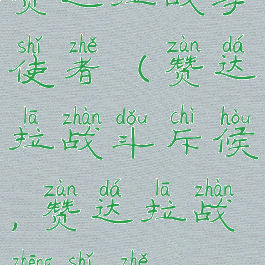 shǐ zhě zàn dá
使者（赞达
lā zhàn dǒu chì hòu
拉战斗斥候
zàn dá lā zhàn
，赞达拉战
zhēng shǐ zhě